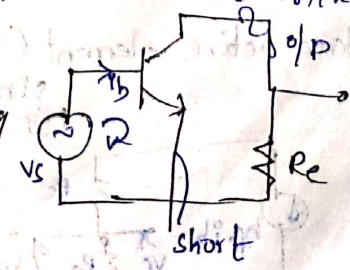 o/p
Ib
Vs
Re
short